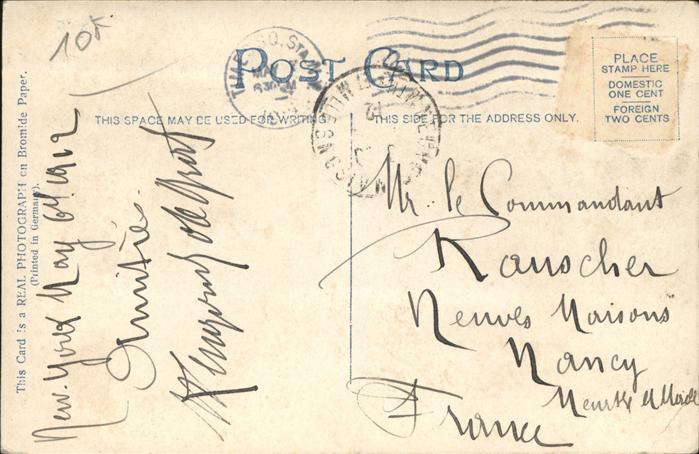 10f
POST CARD
THIS SPACE MAY BE USED FOR WRITING
THIS SIDE FOR THE ADDRESS ONLY.
PLACE
STAMP HERE
DOMESTIC
ONE CENT
FOREIGN
TWO CENTS
This Card is a REAL PHOTOGRAPH on Bromide Paper.
(Printed in Germany).
New-York May 6th 1912
Amitiés.
Mr. le Commandant
Rauscher
Neuves Maisons
Nancy
Meurthe & Moselle
France